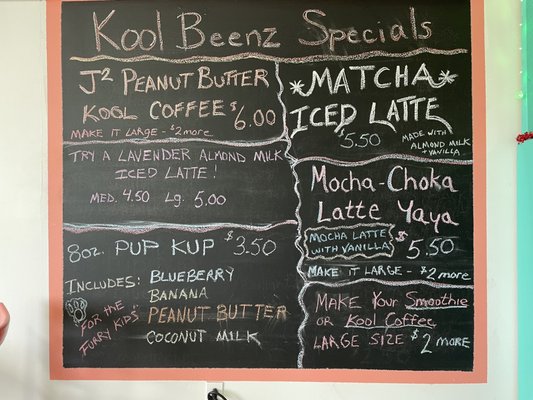 Kool Beenz Specials
J² PEANUT BUTTER
KOOL COFFEE $6.00
MAKE IT LARGE - $2 more
TRY A LAVENDER ALMOND MILK
ICED LATTE!
MED. 4.50 Lg. 5.00
8oz. PUP KUP $3.50
INCLUDES: BLUEBERRY
BANANA
PEANUT BUTTER
COCONUT MILK
"FOR THE
FURRY KIDS"
*MATCHA*
ICED LATTE
$5.50
MADE WITH
ALMOND MILK
+ VANILLA
Mocha-Choka
Latte Yaya
MOCHA LATTE
WITH VANILLA
$5.50
MAKE IT LARGE - $2 more
MAKE YOUR Smoothie
OR Kool Coffee
LARGE SIZE $2 MORE